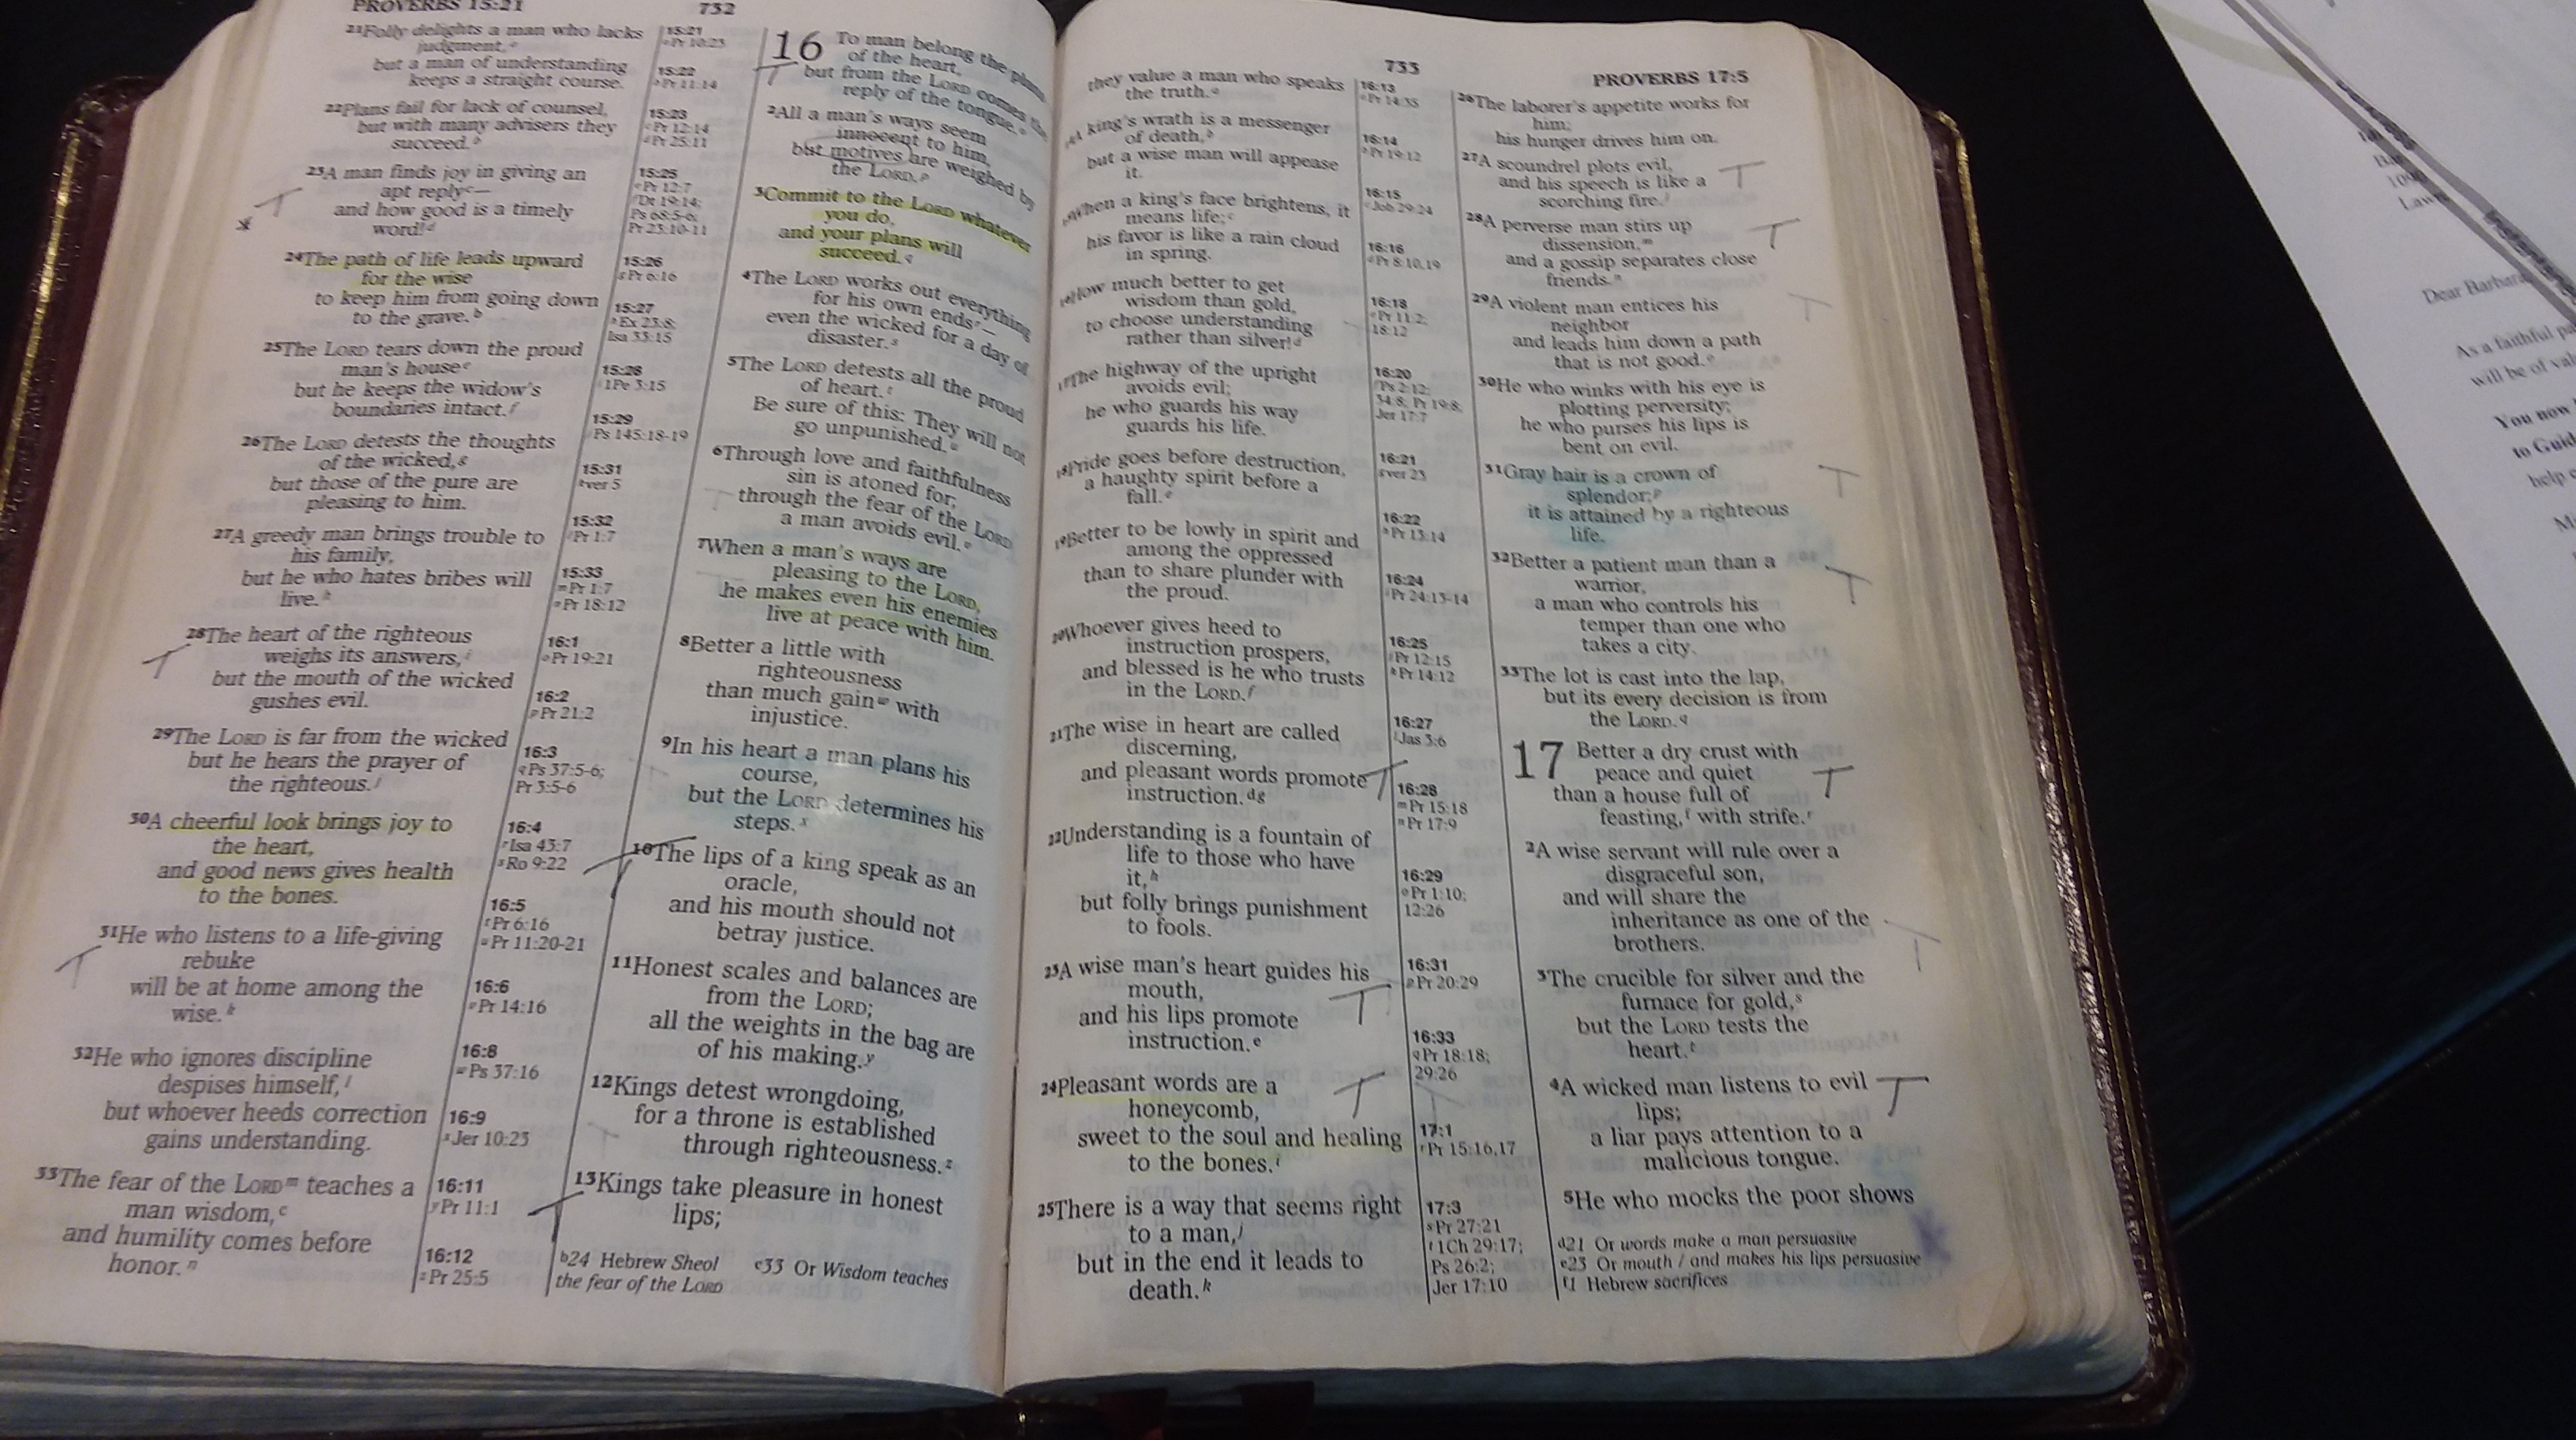 PROVERBS 15:21
732
21Folly delights a man who lacks
judgment,e
but a man of understanding
keeps a straight course.
22Plans fail for lack of counsel,
but with many advisers they
succeed.b
23A man finds joy in giving an
apt replyc—
and how good is a timely
word!d
24The path of life leads upward
for the wise
to keep him from going down
to the grave.b
25The LORD tears down the proud
man's housee
but he keeps the widow's
boundaries intact.f
26The LORD detests the thoughts
of the wicked,g
but those of the pure are
pleasing to him.
27A greedy man brings trouble to
his family,
but he who hates bribes will
live.h
28The heart of the righteous
weighs its answers,i
but the mouth of the wicked
gushes evil.
29The LORD is far from the wicked
but he hears the prayer of
the righteous.j
30A cheerful look brings joy to
the heart,
and good news gives health
to the bones.
31He who listens to a life-giving
rebuke
will be at home among the
wise.k
32He who ignores discipline
despises himself,l
but whoever heeds correction
gains understanding.
33The fear of the LORDm teaches a
man wisdom,c
and humility comes before
honor.n
15:21
Pr 10:23
15:22
bPr 11:14
15:23
cPr 12:14
dPr 25:11
15:25
ePr 12:7
fDt 19:14;
Ps 68:5-6;
Pr 23:10-11
15:26
gPr 6:16
15:27
hEx 23:8;
Isa 33:15
15:28
i1Pe 3:15
15:29
jPs 145:18-19
15:31
kver 5
15:32
lPr 1:7
15:33
mPr 1:7
nPr 18:12
16:1
oPr 19:21
16:2
pPr 21:2
16:3
qPs 37:5-6;
Pr 3:5-6
16:4
rIsa 43:7
sRo 9:22
16:5
tPr 6:16
uPr 11:20-21
16:6
vPr 14:16
16:8
wPs 37:16
16:9
xJer 10:23
16:11
yPr 11:1
16:12
zPr 25:5
16 To man belong the plans
of the heart,
but from the LORD comes the
reply of the tongue.o
2All a man's ways seem
innocent to him,
but motives are weighed by
the LORD.p
3Commit to the LORD whatever
you do,
and your plans will
succeed.q
4The LORD works out everything
for his own endsr—
even the wicked for a day of
disaster.s
5The LORD detests all the proud
of heart.t
Be sure of this: They will not
go unpunished.u
6Through love and faithfulness
sin is atoned for;
through the fear of the LORD
a man avoids evil.v
7When a man's ways are
pleasing to the LORD,
he makes even his enemies
live at peace with him.
8Better a little with
righteousness
than much gainw with
injustice.
9In his heart a man plans his
course,
but the LORD determines his
steps.x
10The lips of a king speak as an
oracle,
and his mouth should not
betray justice.
11Honest scales and balances are
from the LORD;
all the weights in the bag are
of his making.y
12Kings detest wrongdoing,
for a throne is established
through righteousness.z
13Kings take pleasure in honest
lips;
b24 Hebrew Sheol c33 Or Wisdom teaches
the fear of the LORD
733
PROVERBS 17:5
they value a man who speaks
the truth.a
14A king's wrath is a messenger
of death,b
but a wise man will appease
it.
15When a king's face brightens, it
means life;c
his favor is like a rain cloud
in spring.
16How much better to get
wisdom than gold,
to choose understanding
rather than silver!d
17The highway of the upright
avoids evil;
he who guards his way
guards his life.
18Pride goes before destruction,
a haughty spirit before a
fall.e
19Better to be lowly in spirit and
among the oppressed
than to share plunder with
the proud.
20Whoever gives heed to
instruction prospers,
and blessed is he who trusts
in the LORD.f
21The wise in heart are called
discerning,
and pleasant words promote
instruction.dg
22Understanding is a fountain of
life to those who have
it,h
but folly brings punishment
to fools.
23A wise man's heart guides his
mouth,
and his lips promote
instruction.e
24Pleasant words are a
honeycomb,
sweet to the soul and healing
to the bones.i
25There is a way that seems right
to a man,j
but in the end it leads to
death.k
16:13
aPr 14:35
16:14
bPr 19:12
16:15
cJob 29:24
16:16
dPr 8:10,19
16:18
ePr 11:2;
18:12
16:20
fPs 2:12;
34:8; Pr 19:8;
Jer 17:7
16:21
gver 23
16:22
hPr 13:14
16:24
iPr 24:13-14
16:25
jPr 12:15
kPr 14:12
16:27
lJas 3:6
16:28
mPr 15:18
nPr 17:9
16:29
oPr 1:10;
12:26
16:31
pPr 20:29
16:33
qPr 18:18;
29:26
17:1
rPr 15:16,17
17:3
sPr 27:21
t1Ch 29:17;
Ps 26:2;
Jer 17:10
26The laborer's appetite works for
him;
his hunger drives him on.
27A scoundrel plots evil,
and his speech is like a
scorching fire.l
28A perverse man stirs up
dissension,m
and a gossip separates close
friends.n
29A violent man entices his
neighbor
and leads him down a path
that is not good.o
30He who winks with his eye is
plotting perversity;
he who purses his lips is
bent on evil.
31Gray hair is a crown of
splendor;p
it is attained by a righteous
life.
32Better a patient man than a
warrior,
a man who controls his
temper than one who
takes a city.
33The lot is cast into the lap,
but its every decision is from
the LORD.q
17 Better a dry crust with
peace and quiet
than a house full of
feasting,f with strife.r
2A wise servant will rule over a
disgraceful son,
and will share the
inheritance as one of the
brothers.
3The crucible for silver and the
furnace for gold,s
but the LORD tests the
heart.t
4A wicked man listens to evil
lips;
a liar pays attention to a
malicious tongue.
5He who mocks the poor shows
d21 Or words make a man persuasive
e23 Or mouth / and makes his lips persuasive
f1 Hebrew sacrifices
Dear Barbara
As a faithful
will be of
You now
to
help